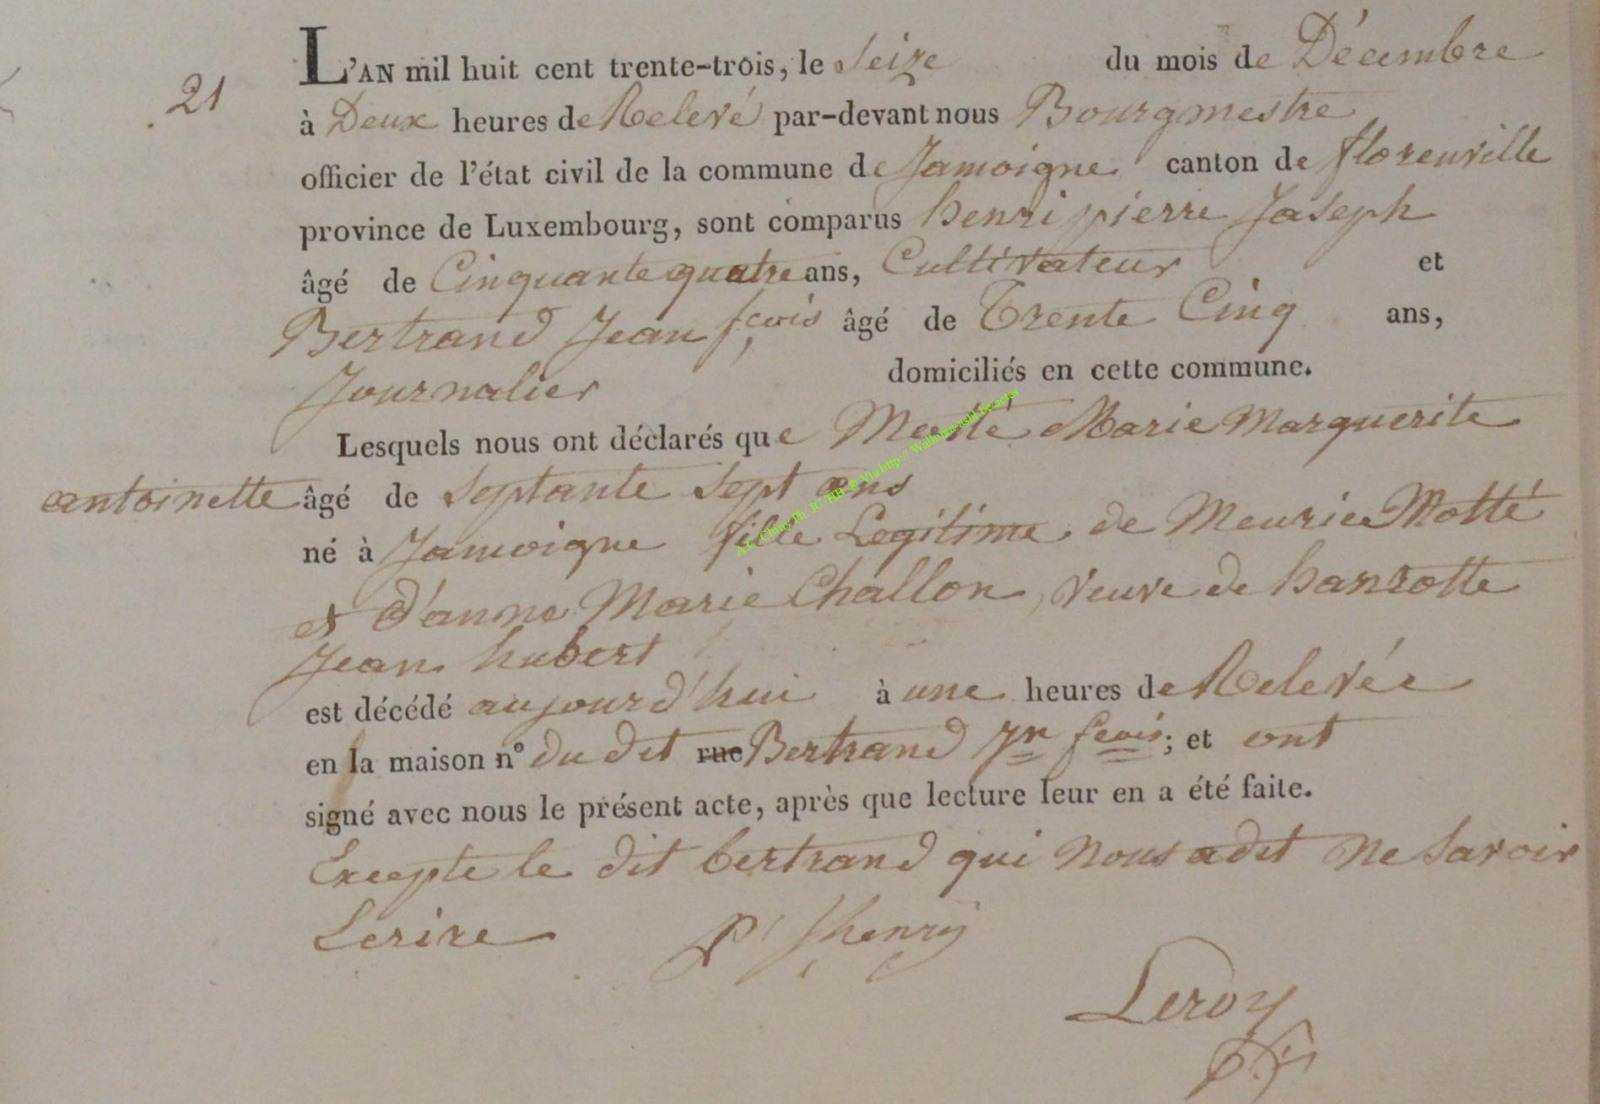 21
L'AN mil huit cent trente-trois, le Seize du mois de Décembre
à Deux heures de Relevé par-devant nous Bourgmestre
officier de l'état civil de la commune de Jamoigne canton de florenville
province de Luxembourg, sont comparus henri pierre Joseph
âgé de Cinquante quatre ans, Cultivateur et
Bertrand Jean fçois âgé de Trente Cinq ans,
Journalier domiciliés en cette commune.
Lesquels nous ont déclarés que Motté Marie Marguerite
antoinette âgé de Septante Sept ans
né à Jamoigne fille Legitime de Meurice Motté
et d'anne Marie Challon, veuve de hanrotte
Jean hubert
est décédé aujourd'hui à une heures de Relevée
en la maison n° du dit rue Bertrand Jn fcois; et ont
signé avec nous le présent acte, après que lecture leur en a été faite.
Excepte le dit bertrand qui nous a dit ne Savoir
Ecrire P J henry
Leroy